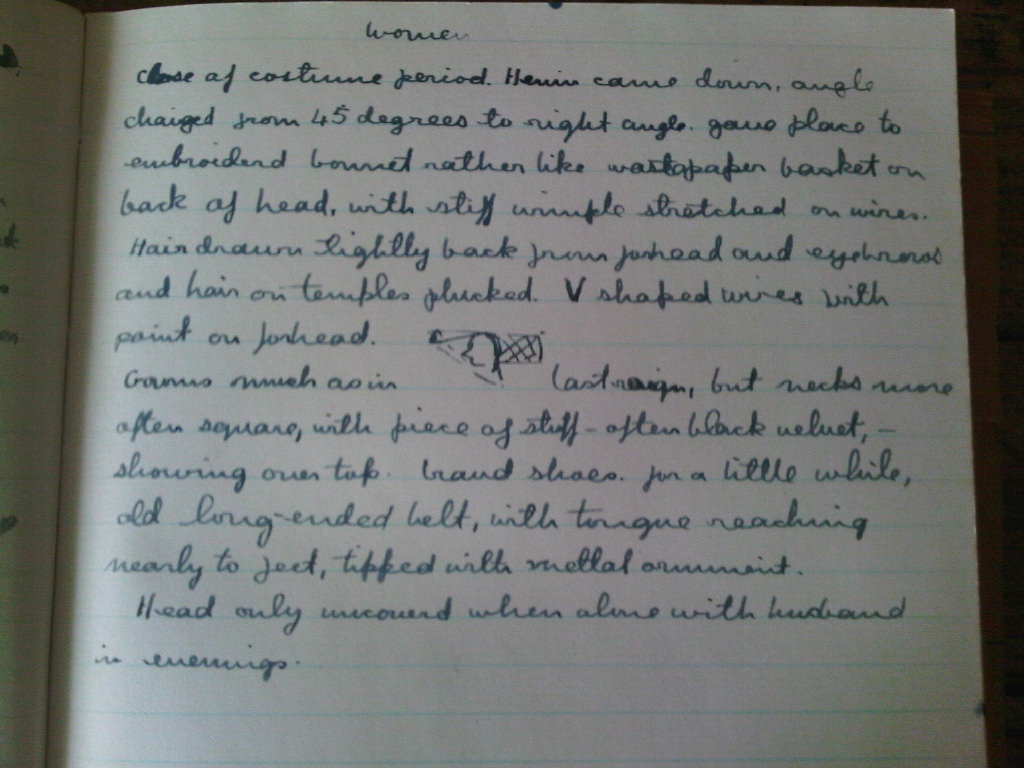 women
Close of costume period. Henin came down, angle
changed from 45 degrees to right angle. gave place to
embroiderd bonnet rather like wastepaper basket on
back of head, with stiff wimple stretched on wires.
Hair drawn tightly back from forhead and eyebrows
and hair on temples plucked. V shaped wires with
point on forhead.
Gowns much as in last reign, but necks more
often square, with piece of stuff - often black velvet, -
showing over top. broad shoes. for a little while,
old long-ended belt, with tongue reaching
nearly to feet, tipped with mettal ornument.
Head only uncoverd when alone with husband
in evenings.